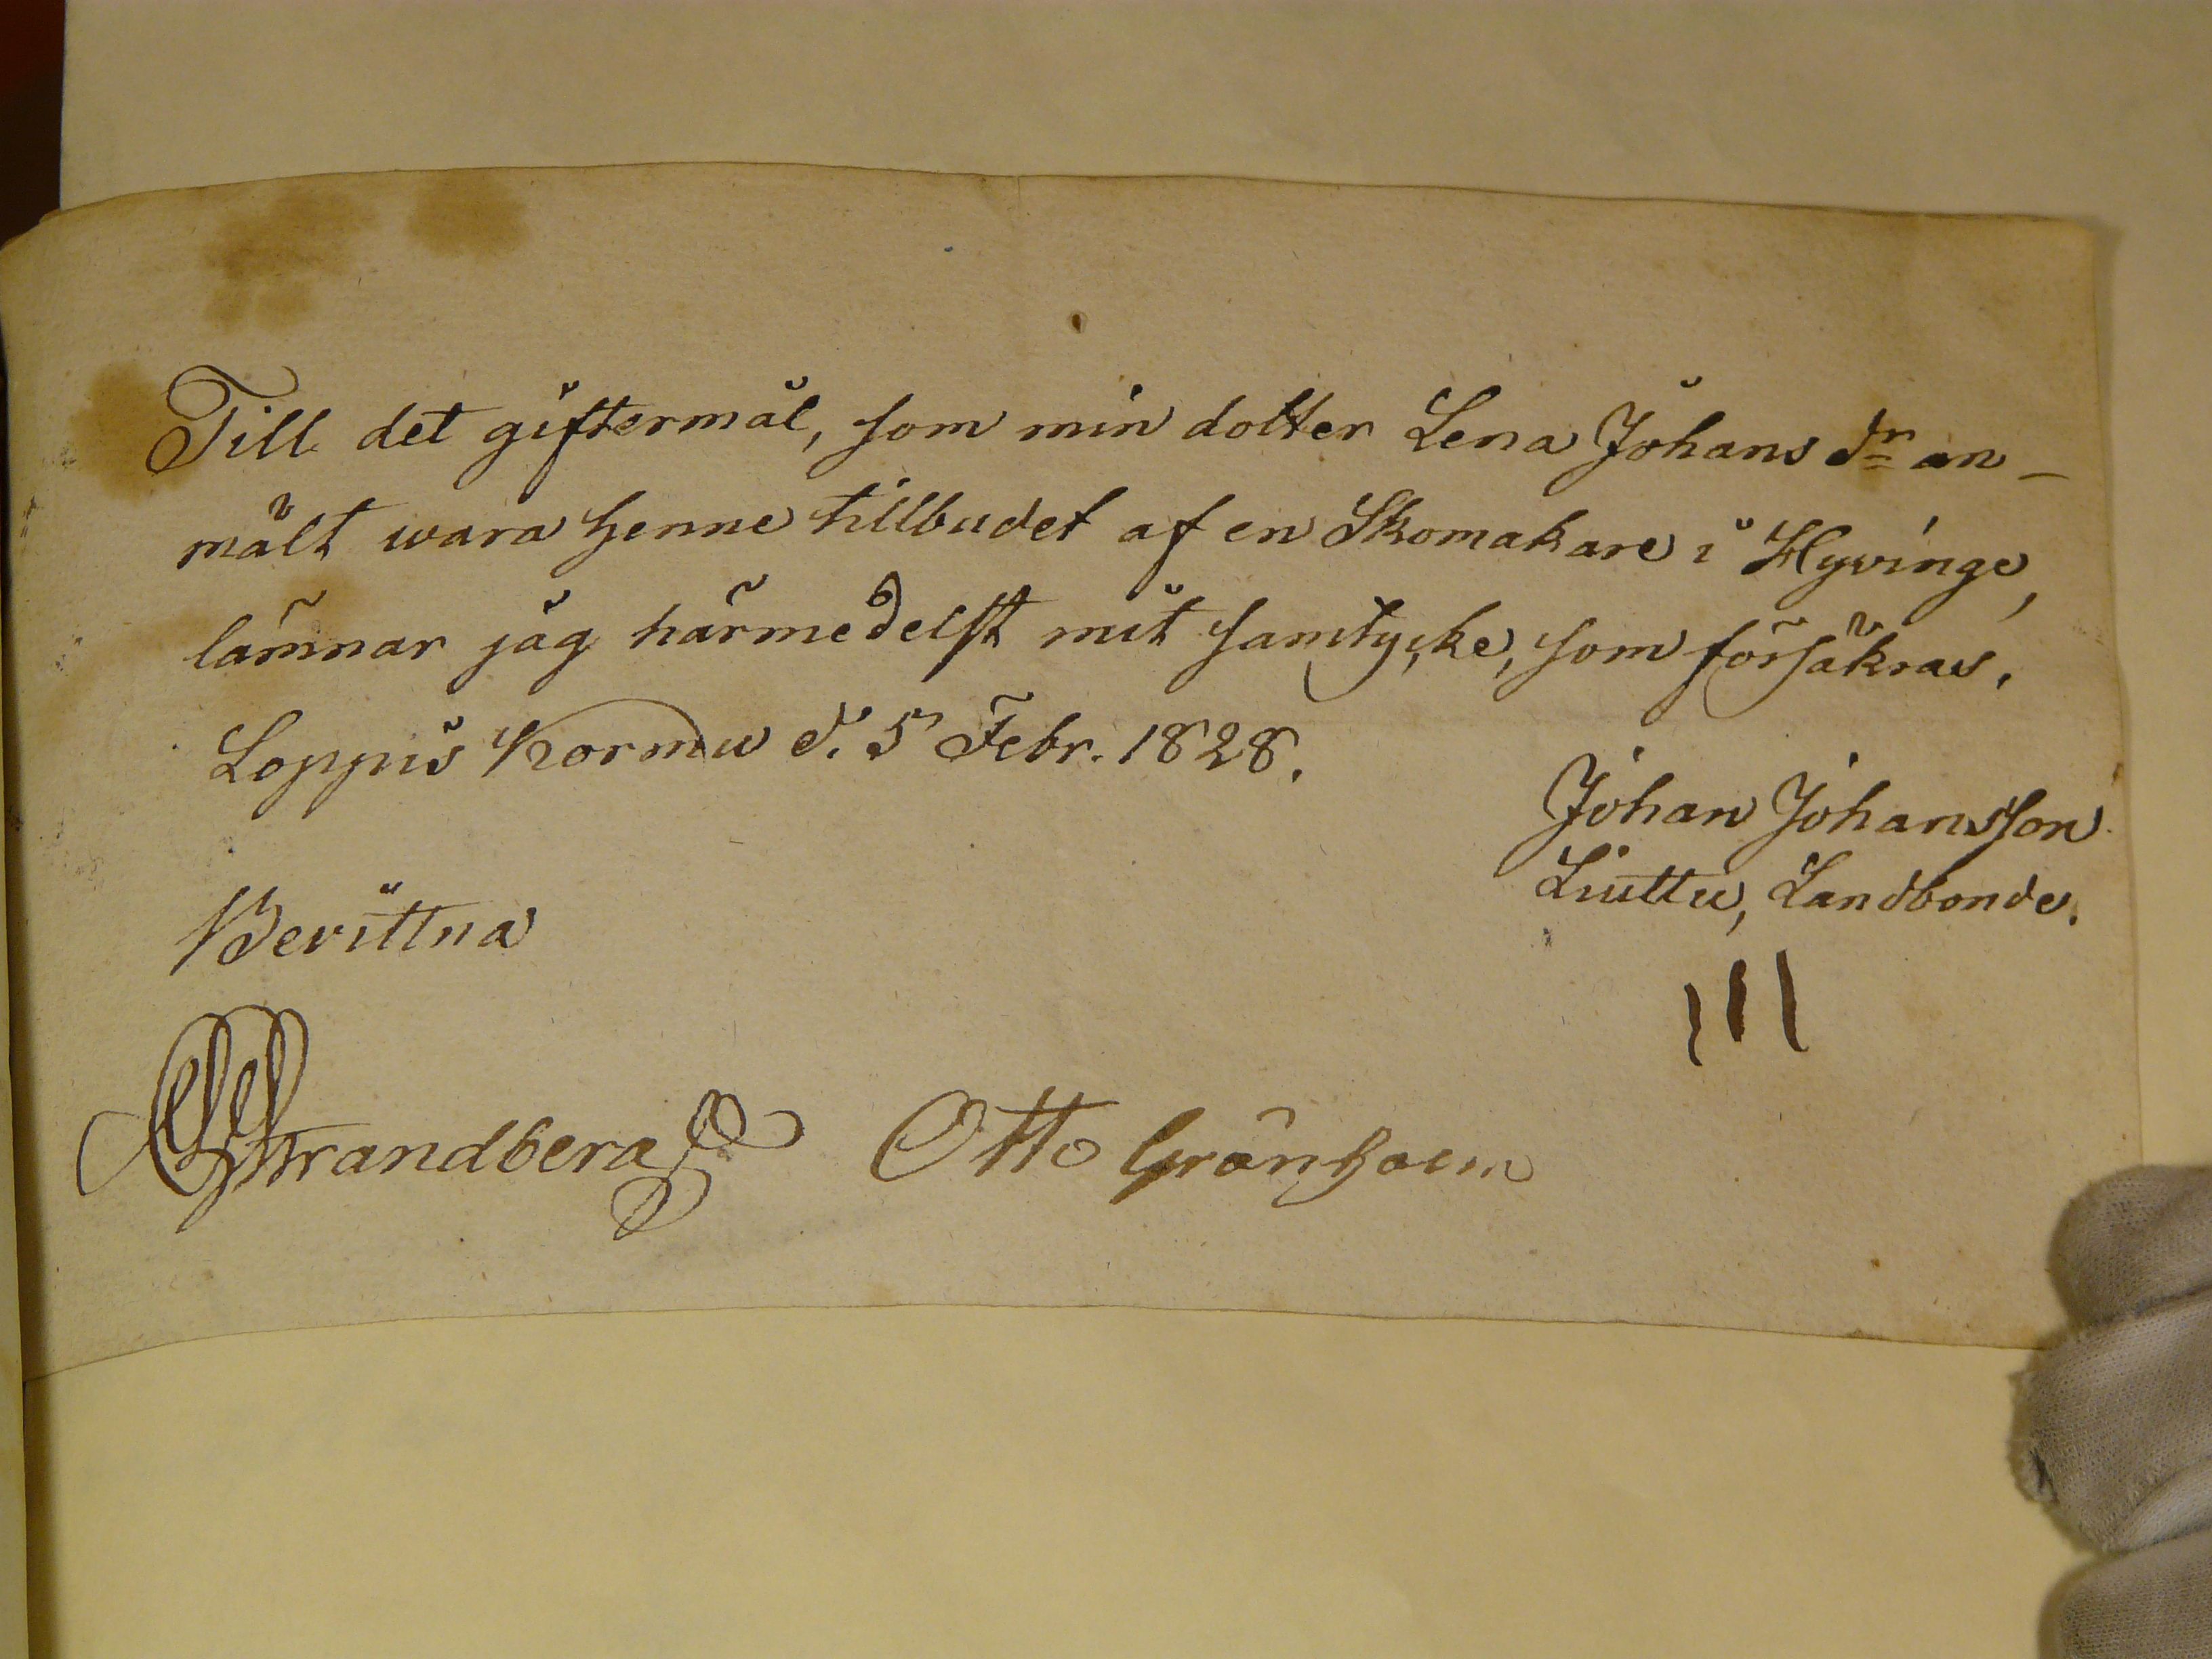 Till det giftermål, som min dotter Lena Johans dr an-
mält wara henne tillbudet af en Skomakare i Hyvinge,
lämnar jag härmedelst mit samtycke, som försäkras.
Loppis Kormu d. 5 Febr. 1828.
Johan Johansson
Liuttu, Landbonde.
Bevittna
Strandberg Otto Grönholm